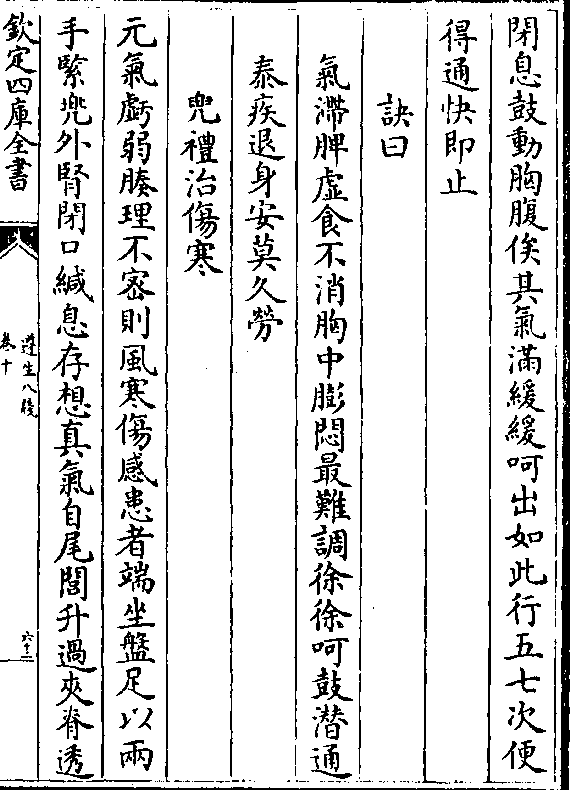 閉息鼓動胸腹俟其氣滿緩緩呵出如此行五七次便
得通快即止
訣曰
氣滯脾虛食不消胸中膨悶最難調徐徐呵鼓潛通
泰疾退身安莫久勞
兜禮治傷寒
元氣虧弱腠理不密則風寒傷感患者端坐盤足以兩
手緊兜外腎閉口緘息存想真氣自尾閭升過夾脊透
欽定四庫全書
遵生八牋
卷十
六十二